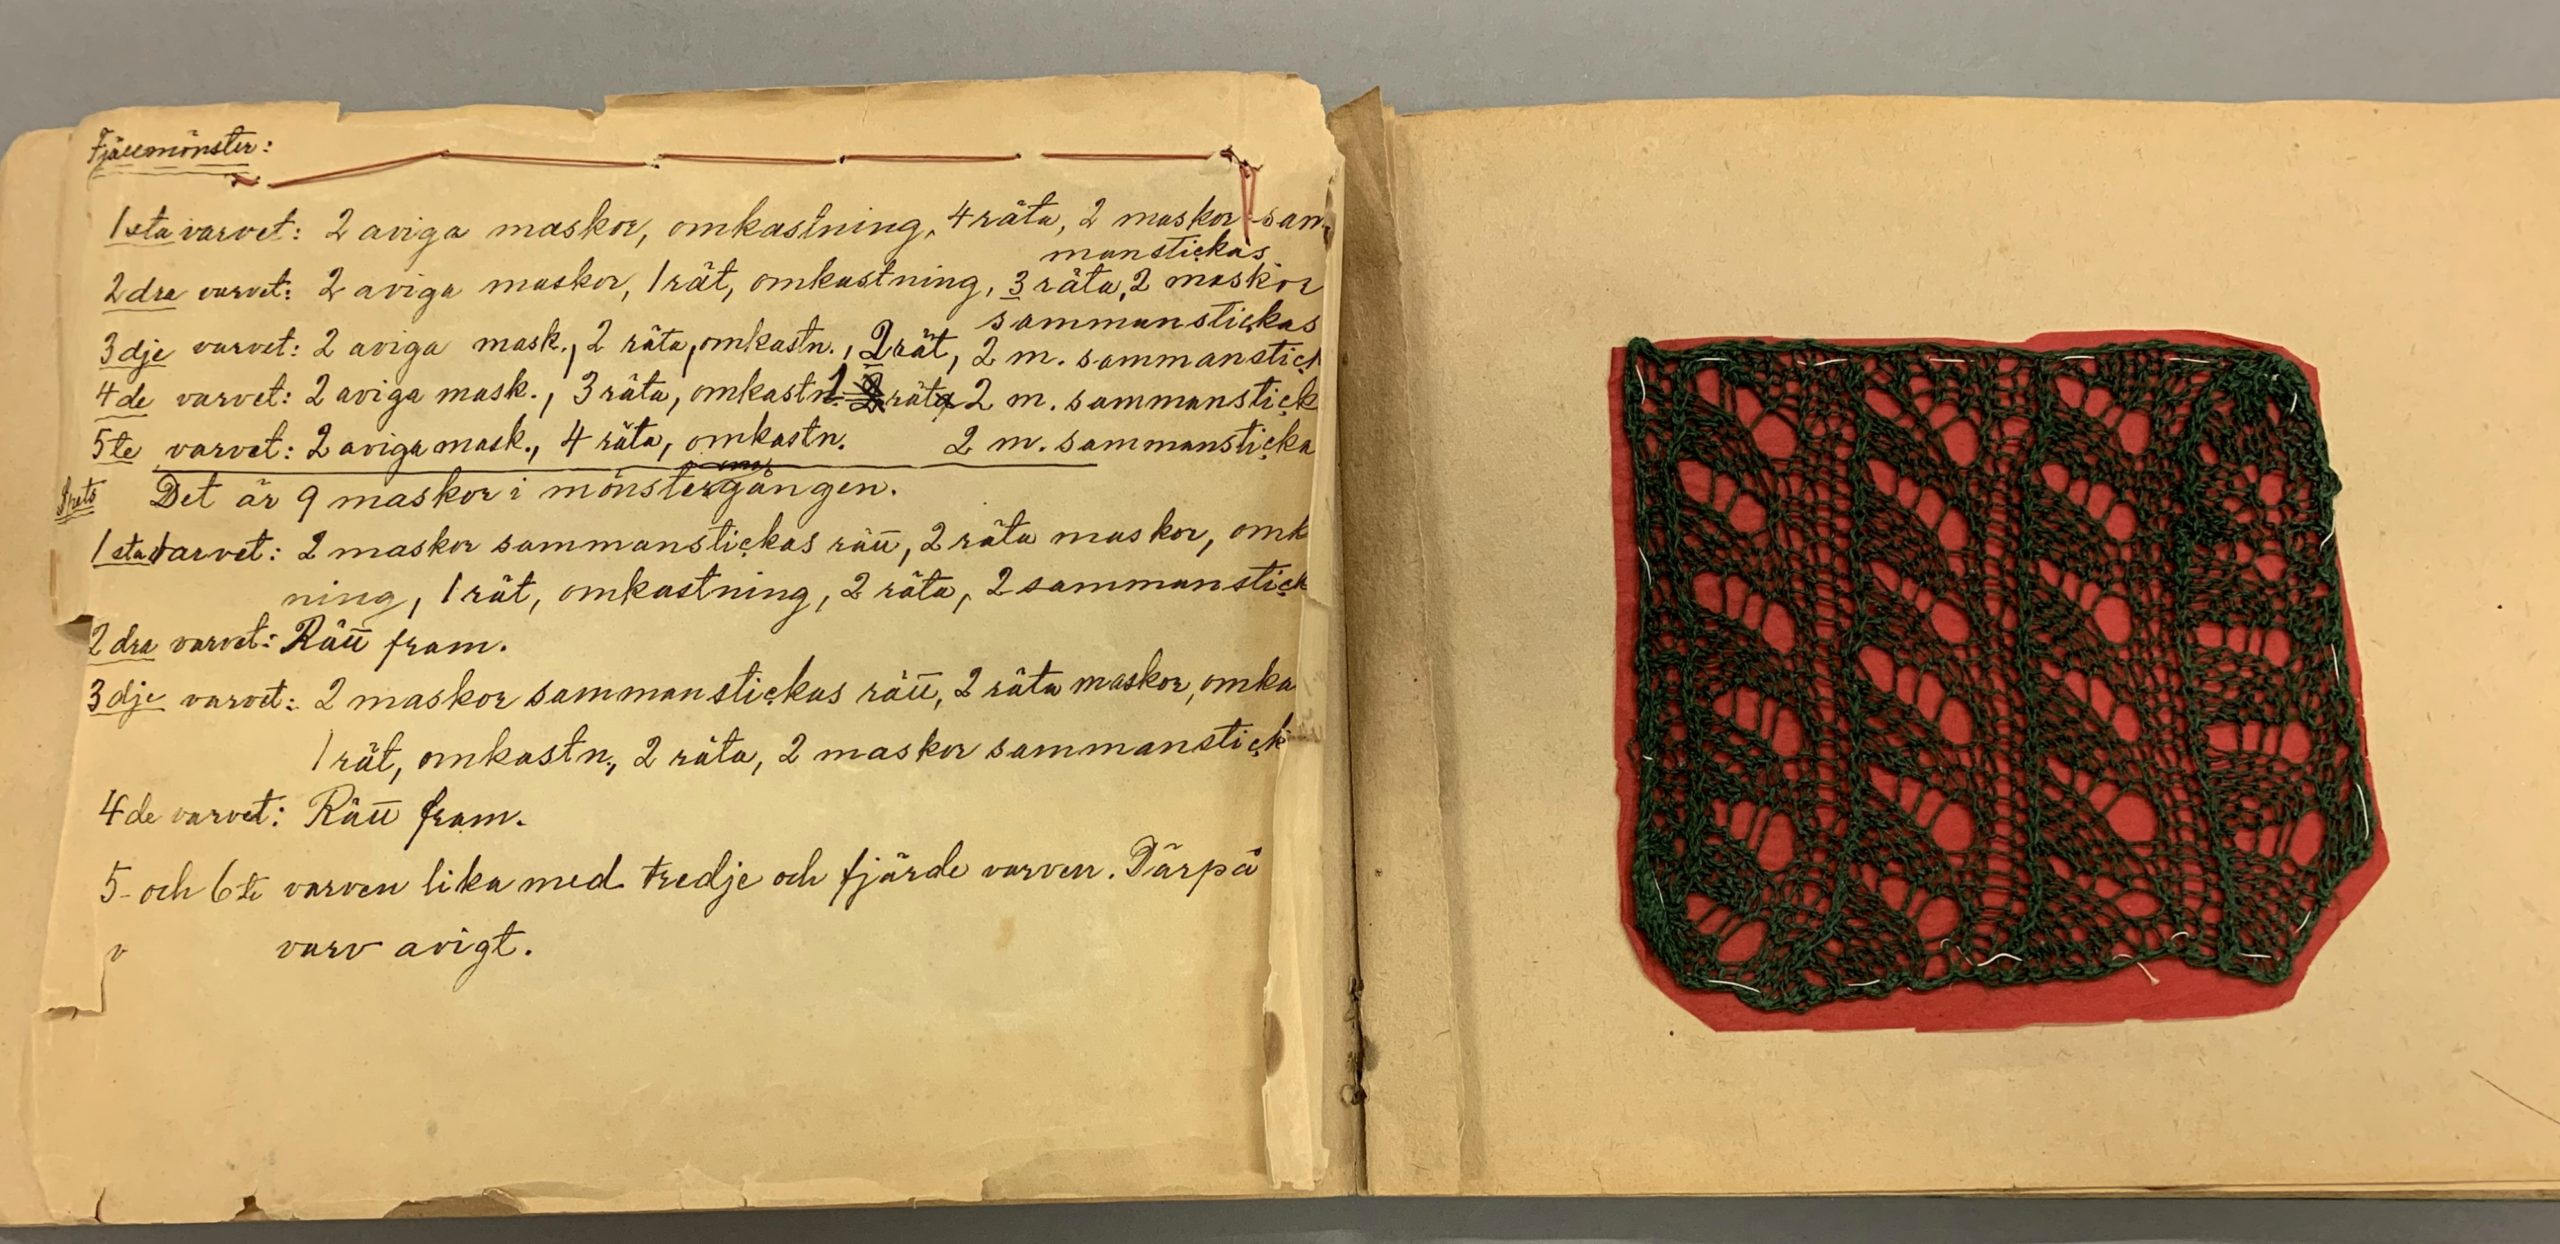 Fjällmönster:
1sta varvet: 2 aviga maskor, omkastning, 4 räta, 2 maskor sam
manstickas
2dra varvet: 2 aviga maskor, 1 rät, omkastning, 3 räta, 2 maskor
sammanstickas
3dje varvet: 2 aviga mask., 2 räta, omkastn., 2 rät, 2 m. sammanstick
4de varvet: 2 aviga mask., 3 räta, omkastn. 1 rät 2 m. sammanstick
5te varvet: 2 aviga mask., 4 räta, omkastn. 2 m. sammansticka
Spets Det är 9 maskor i mönstergången.
1sta varvet: 2 maskor sammanstickas rätt, 2 räta maskor, omk
ning, 1 rät, omkastning, 2 räta, 2 sammanstick
2dra varvet: Rätt fram.
3dje varvet: 2 maskor sammanstickas rätt, 2 räta maskor, omka
1 rät, omkastn., 2 räta, 2 maskor sammanstick
4de varvet: Rätt fram.
5- och 6te varven lika med tredje och fjärde varven. Därpå
v varv avigt.